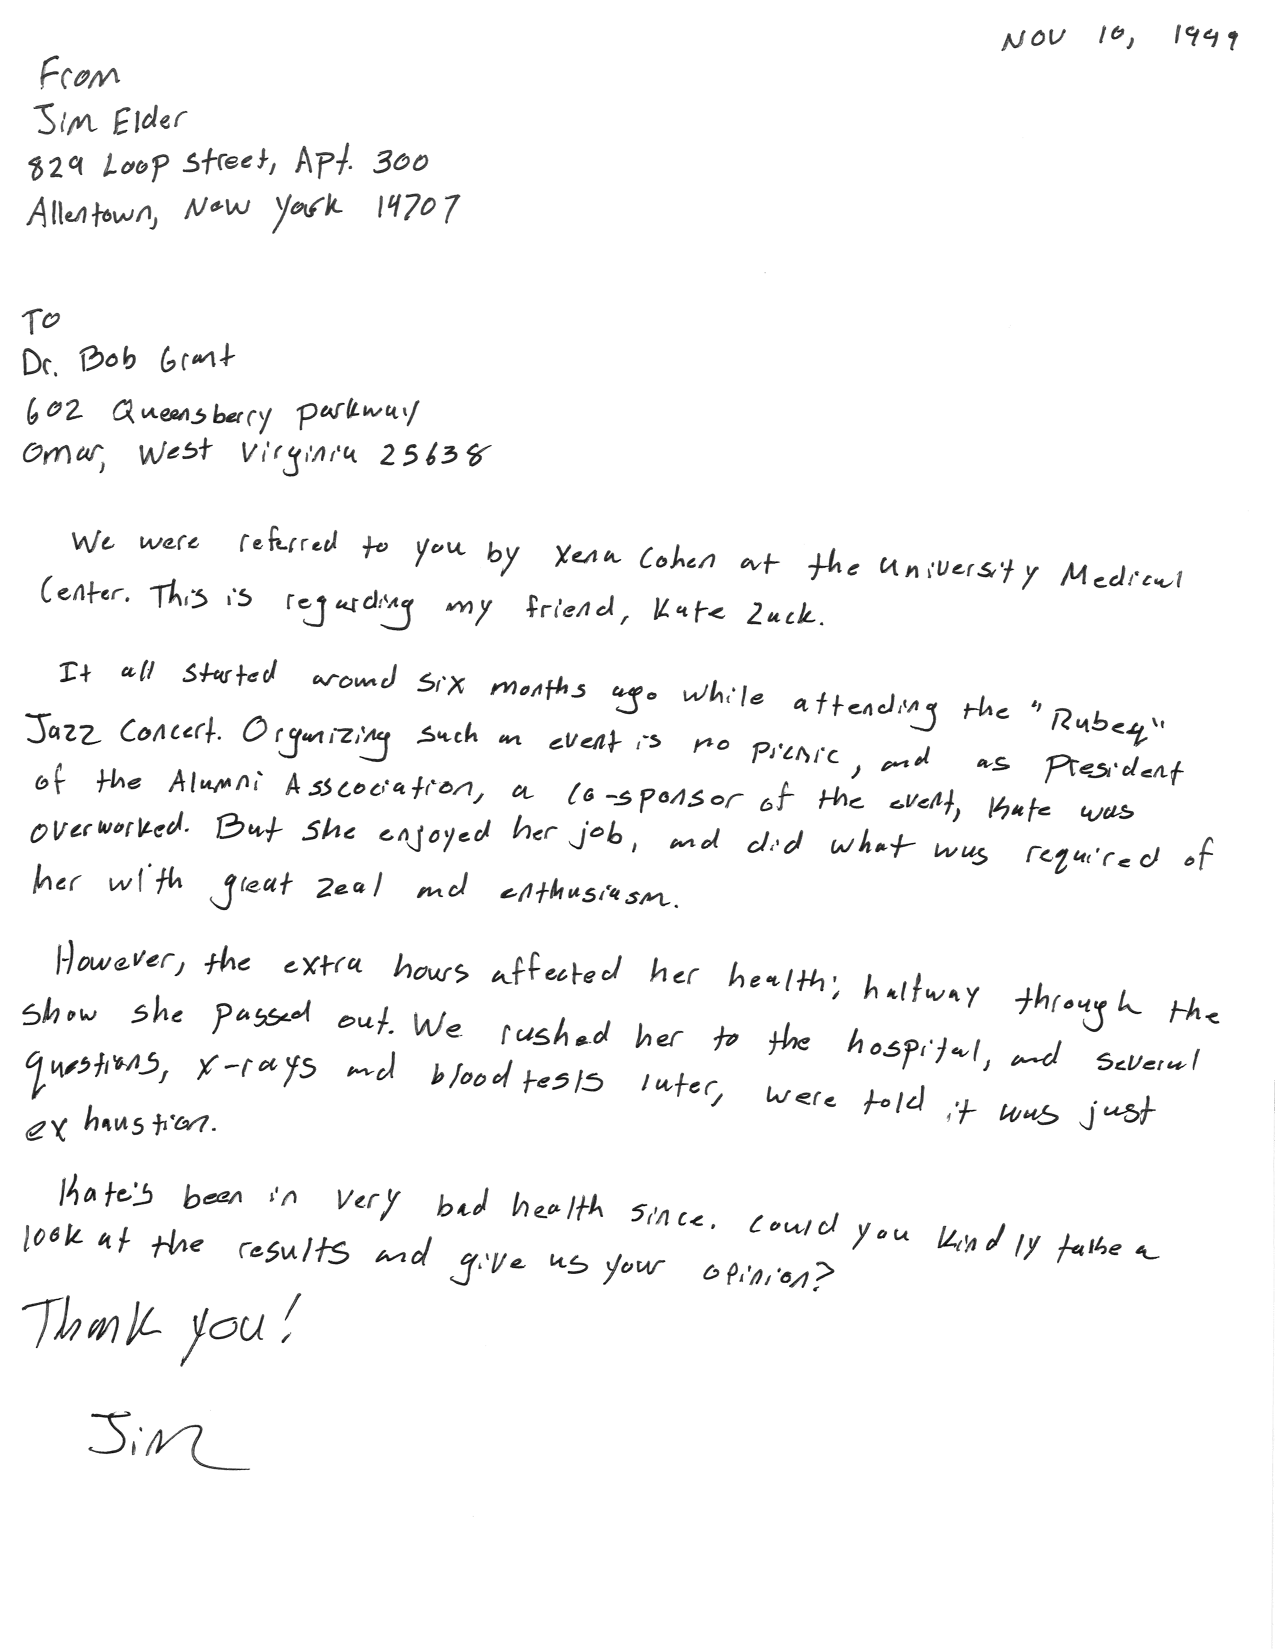 Nov 10, 1999
From
Jim Elder
829 Loop Street, Apt. 300
Allentown, New York 14707
To
Dr. Bob Grant
602 Queensberry Parkway
Omar, West Virginia 25638
We were referred to you by Xena Cohen at the University Medical
Center. This is regarding my friend, Kate Zuck.
It all started around six months ago while attending the "Rubeq"
Jazz Concert. Organizing such an event is no picnic, and as President
of the Alumni Asscociation, a co-sponsor of the event, Kate was
overworked. But she enjoyed her job, and did what was required of
her with great zeal and enthusiasm.
However, the extra hours affected her health; halfway through the
show she passed out. We rushed her to the hospital, and several
questions, x-rays and blood tests later, were told it was just
exhaustion.
Kate's been in very bad health since. Could you kindly take a
look at the results and give us your opinion?
Thank you!
Jim